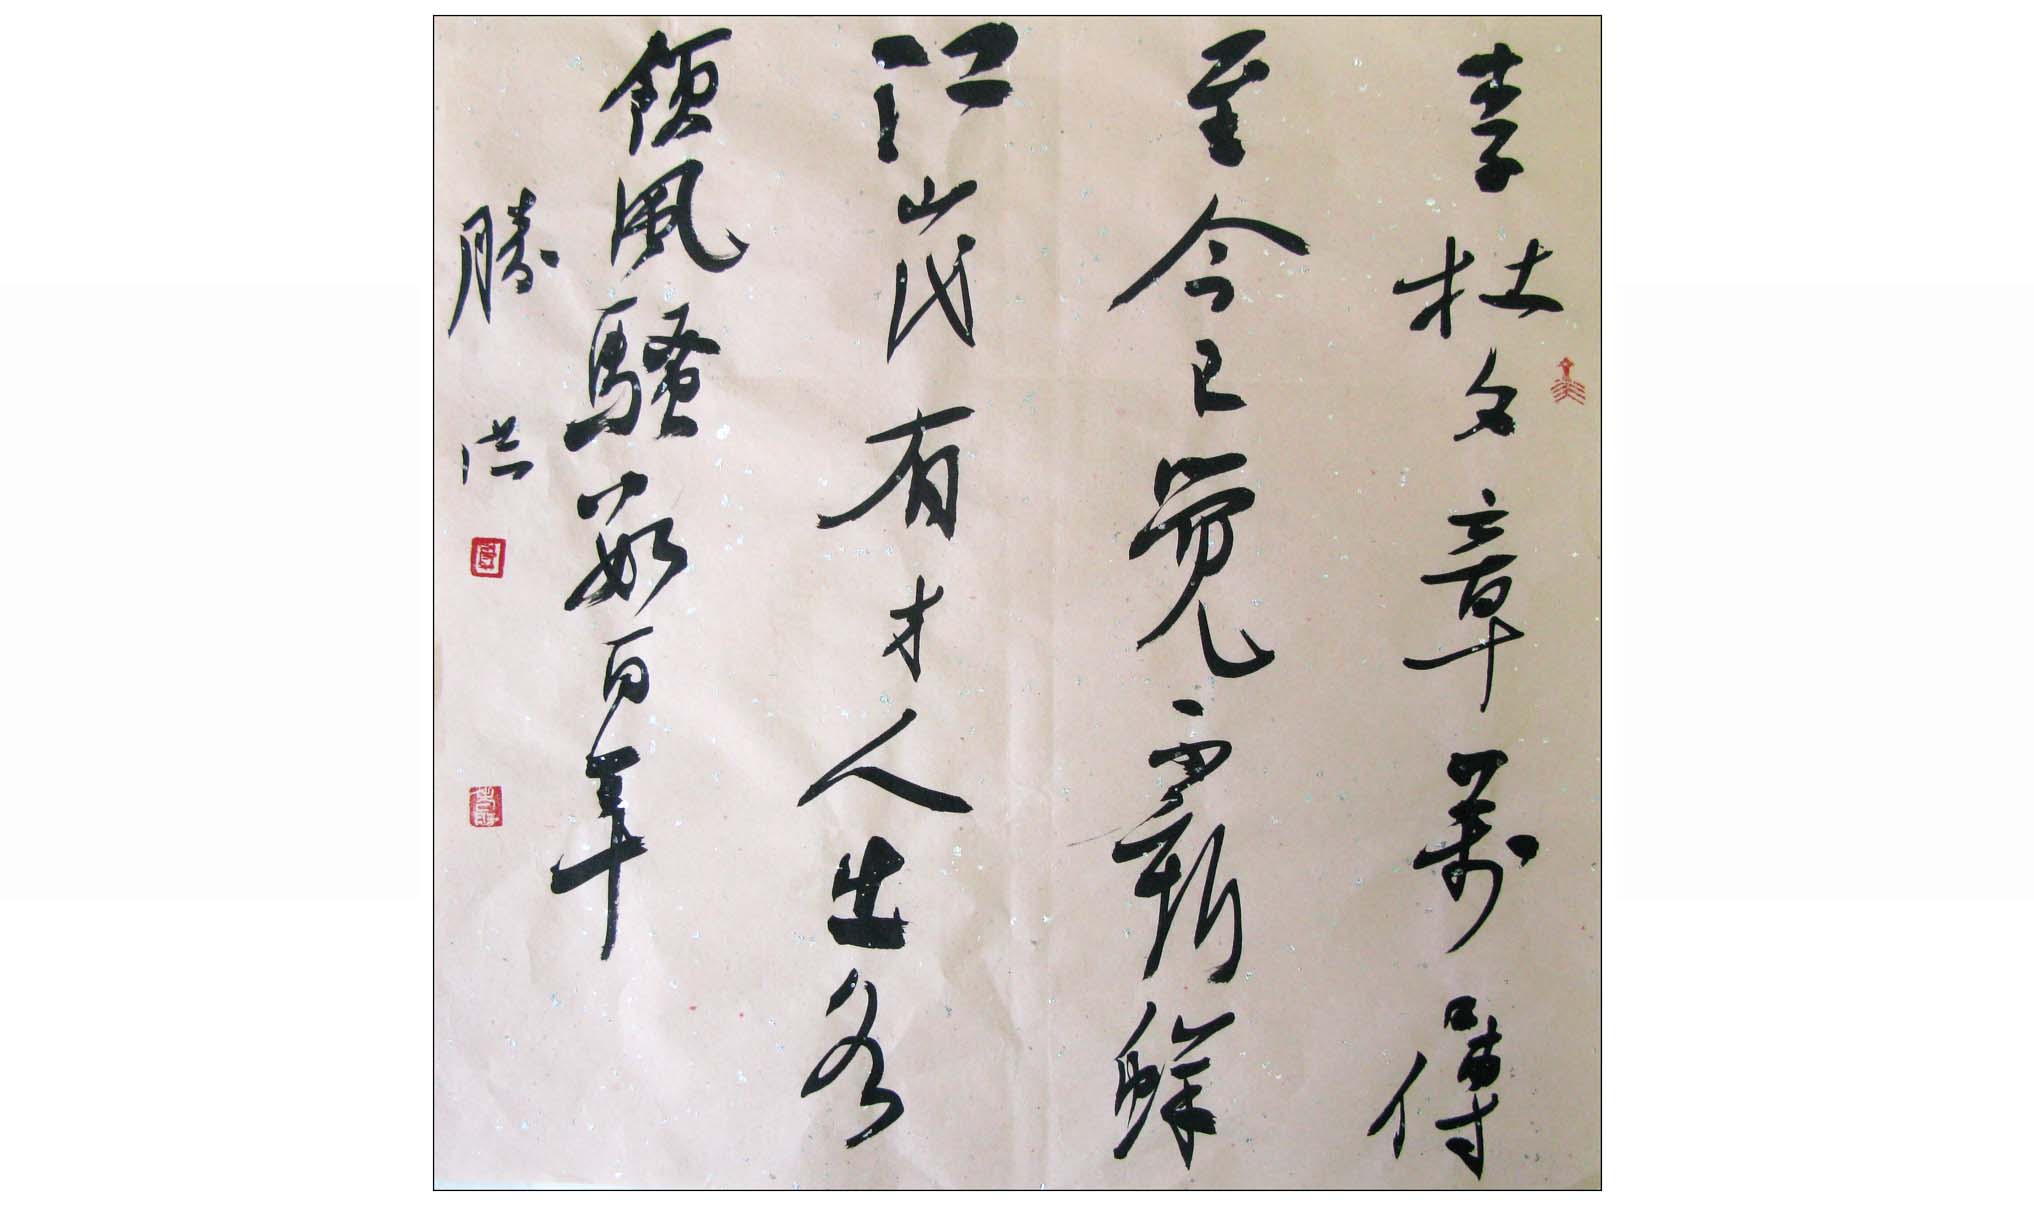 李杜文章萬口傳
至今已覺不新鮮
江山代有才人出各
領風騷數百年
勝洪